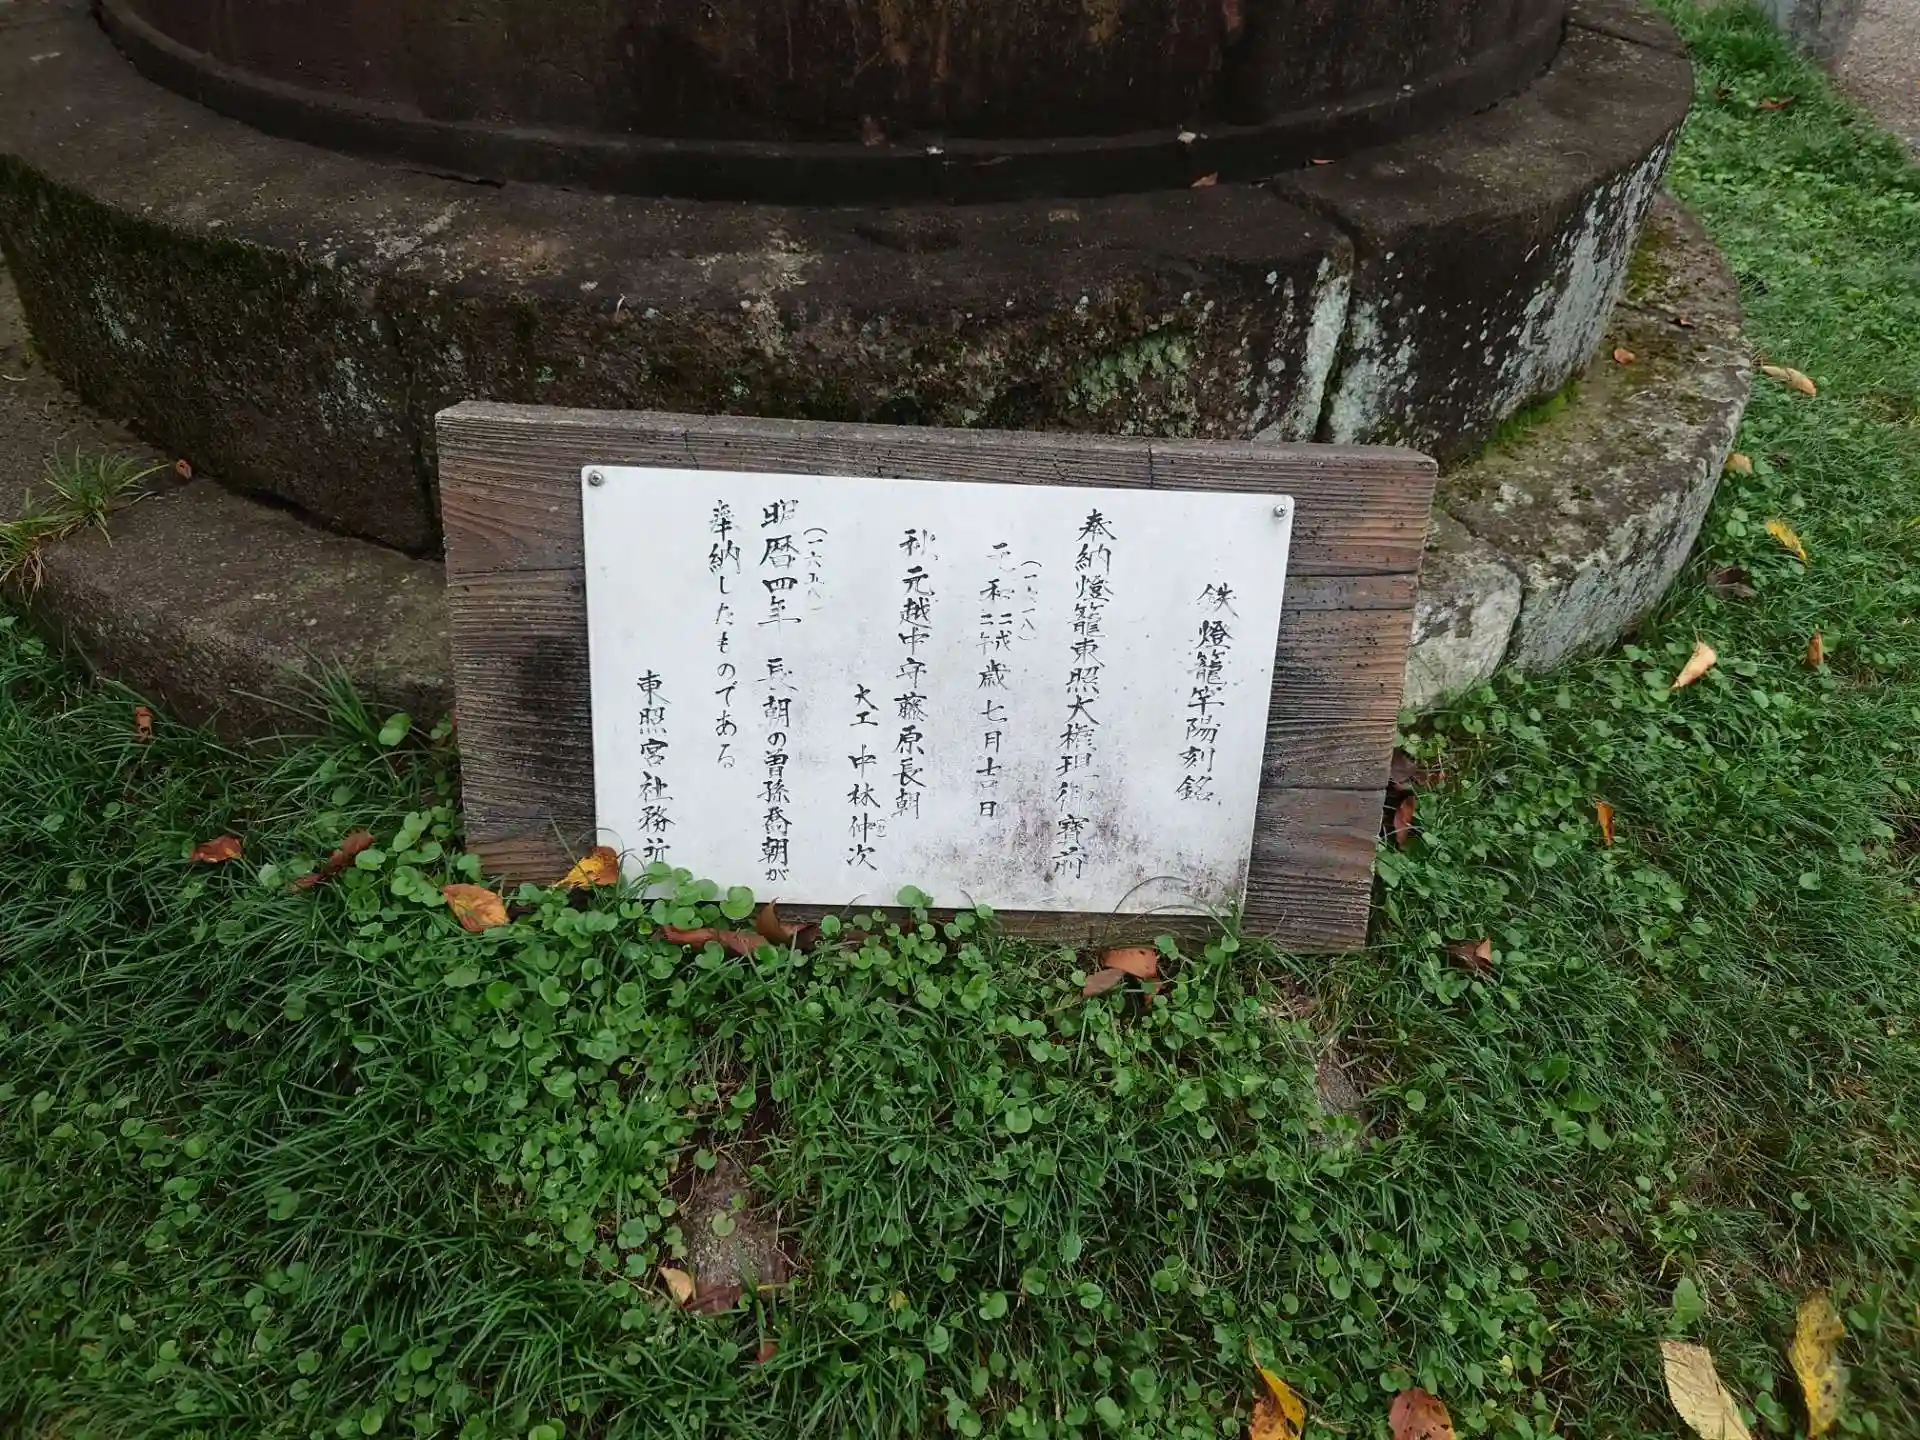 鉄燈籠竿陽刻銘
奉納燈籠東照大権現御寶前
(一六一八)
元和二二戊午歳七月吉日
秋元越中守藤原長朝
大工 中林仲次
(一六五八)
明暦四年 長朝の曽孫喬朝が
奉納したものである
東照宮社務所